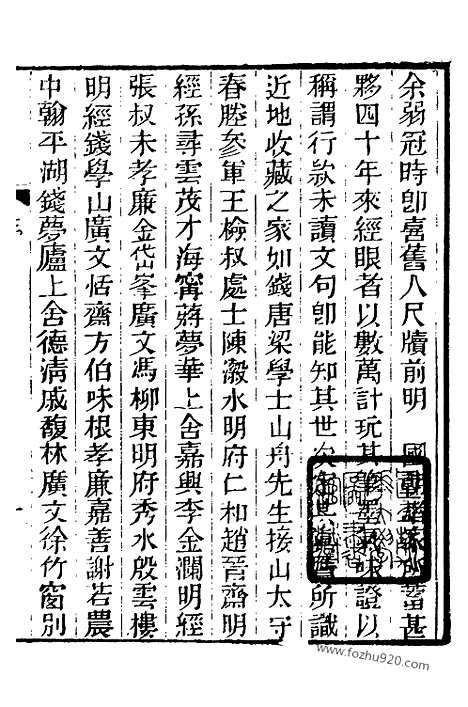 余弱冠時卽臺舊人尺牘前明　國朝諸家所蓄甚
夥四十年來經眼者以數萬計玩其筆墨氣味證以
稱謂行款未讀文句卽能知其世次所識
近地收藏之家如錢唐梁學士山舟先生接山太守
春塍參軍王檢叔處士陳瀔水明府仁和趙晉齋明
經孫尋雲茂才海甯蔣夢華上舍嘉興李金瀾明經
張叔未孝廉金岱峯廣文馮柳東明府秀水殷雲樓
明經錢學山廣文恬齋方伯味根孝廉嘉善謝若農
中翰平湖錢夢廬上舍德清戚馥林廣文徐竹窗別
www.fozhu920.com